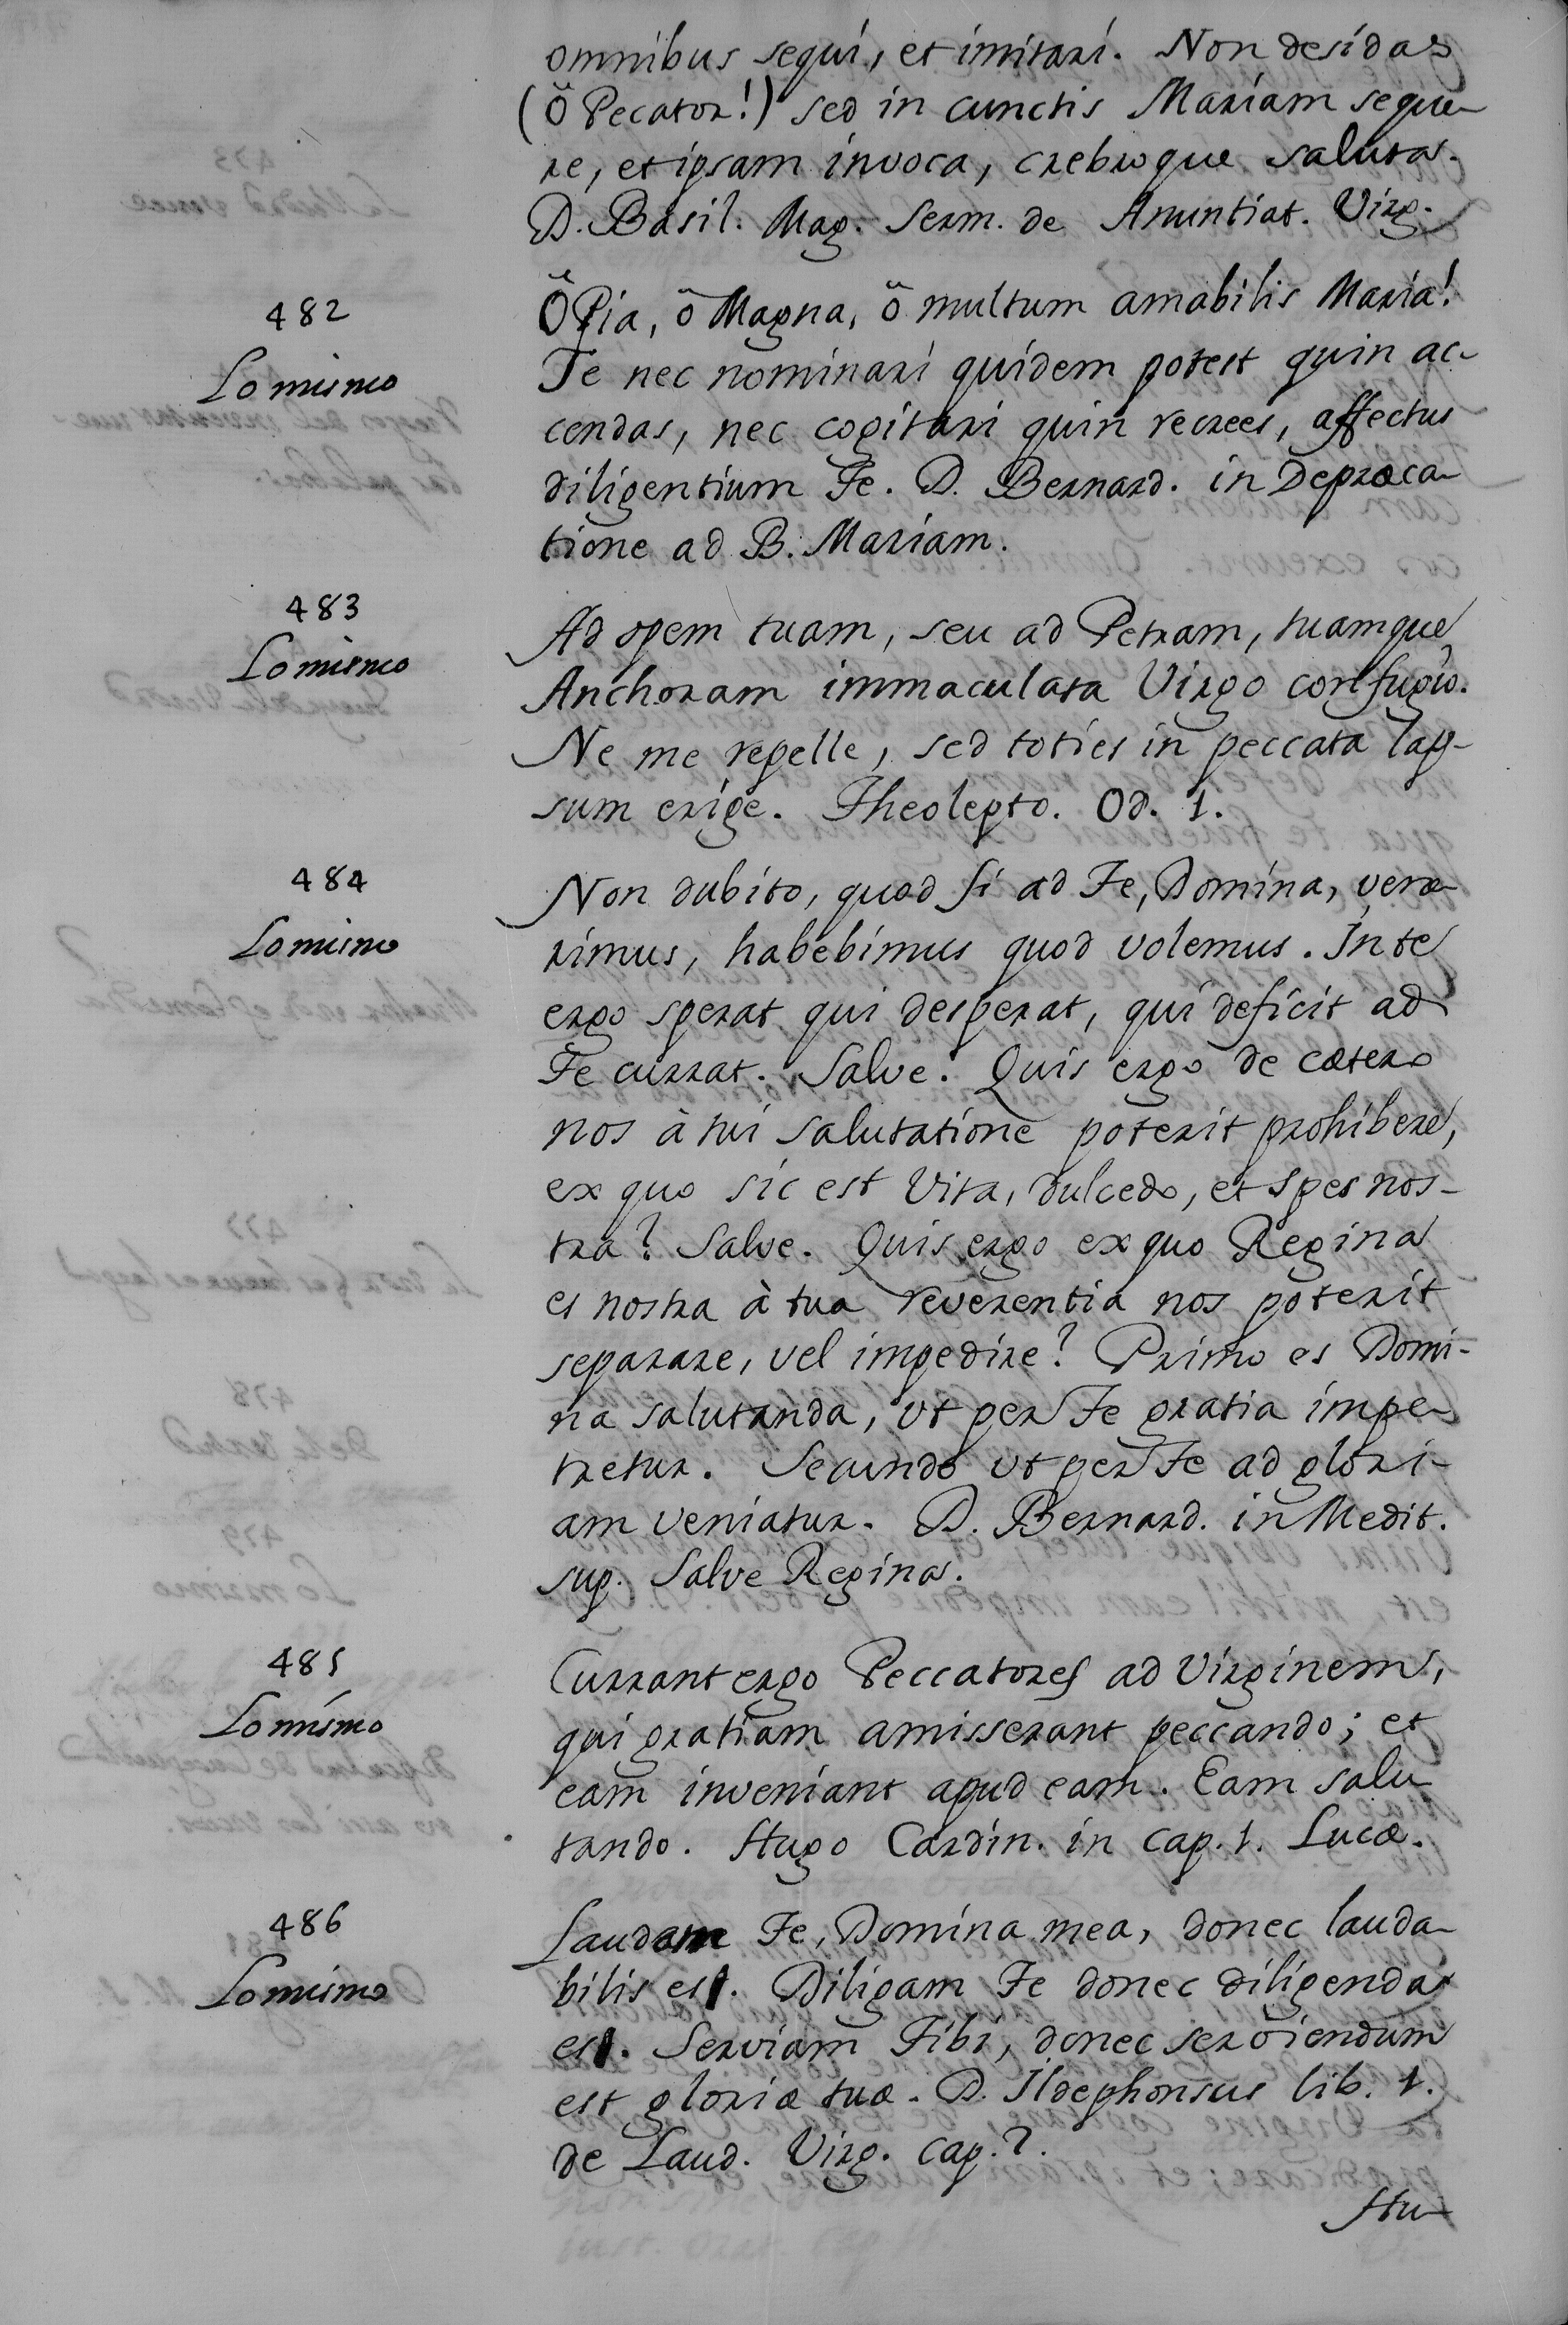 omnibus sequi, et imitari. Non desidas
(ô Pecator!) sed in cunctis Mariam seque-
re, et ipsam invoca, crebroque saluta.
D. Basil. Mag. Serm. de Anuntiat. Virg.
482
Lo mismo
Ô Pia, ô Magna, ô multum amabilis Maria!
Te nec nominari quidem potest quin ac-
cendas, nec cogitari quin recrees, affectus
diligentium Te. D. Bernard. in Depræca-
tione ad B. Mariam.
483
Lo mismo
Ad spem tuam, seu ad Petram, tuamque
Anchoram immaculata Virgo confugio.
Ne me repelle, sed toties in peccata lap-
sum erige. Theolepto. Od. 1.
484
Lo mismo
Non dubito, quod si ad Te, Domina, vene-
rimus, habebimus quod volemus. In te
ergo sperat qui desperat, qui deficit ad
Te currat. Salve. Quis ergo de cætero
nos à tui salutatione poterit prohibere,
ex quo sic est Vita, dulcedo, et spes nos-
tra? Salve. Quis ergo ex quo Regina
es nostra à tua reverentia nos poterit
separare, vel impedire? Primo es Domi-
na salutanda, ut per Te gratia impe-
tretur. Secundo ut per Te ad glori-
am veniatur. D. Bernard. in Medit.
sup. Salve Regina.
485
Lo mismo
Currant ergo Peccatores ad Virginem,
qui gratiam amisserant peccando; et
eam inveniant apud eam. Eam salu-
tando. Hugo Cardin. in cap. 1. Lucæ.
486
Lo mismo
Laudam Te, Domina mea, donec lauda-
bilis est. Diligam Te donec diligenda
est. Serviam Tibi, donec serviendum
est gloriæ tuæ. D. Ildephonsus lib. 1.
de Laud. Virg. cap. ?.
Hu-